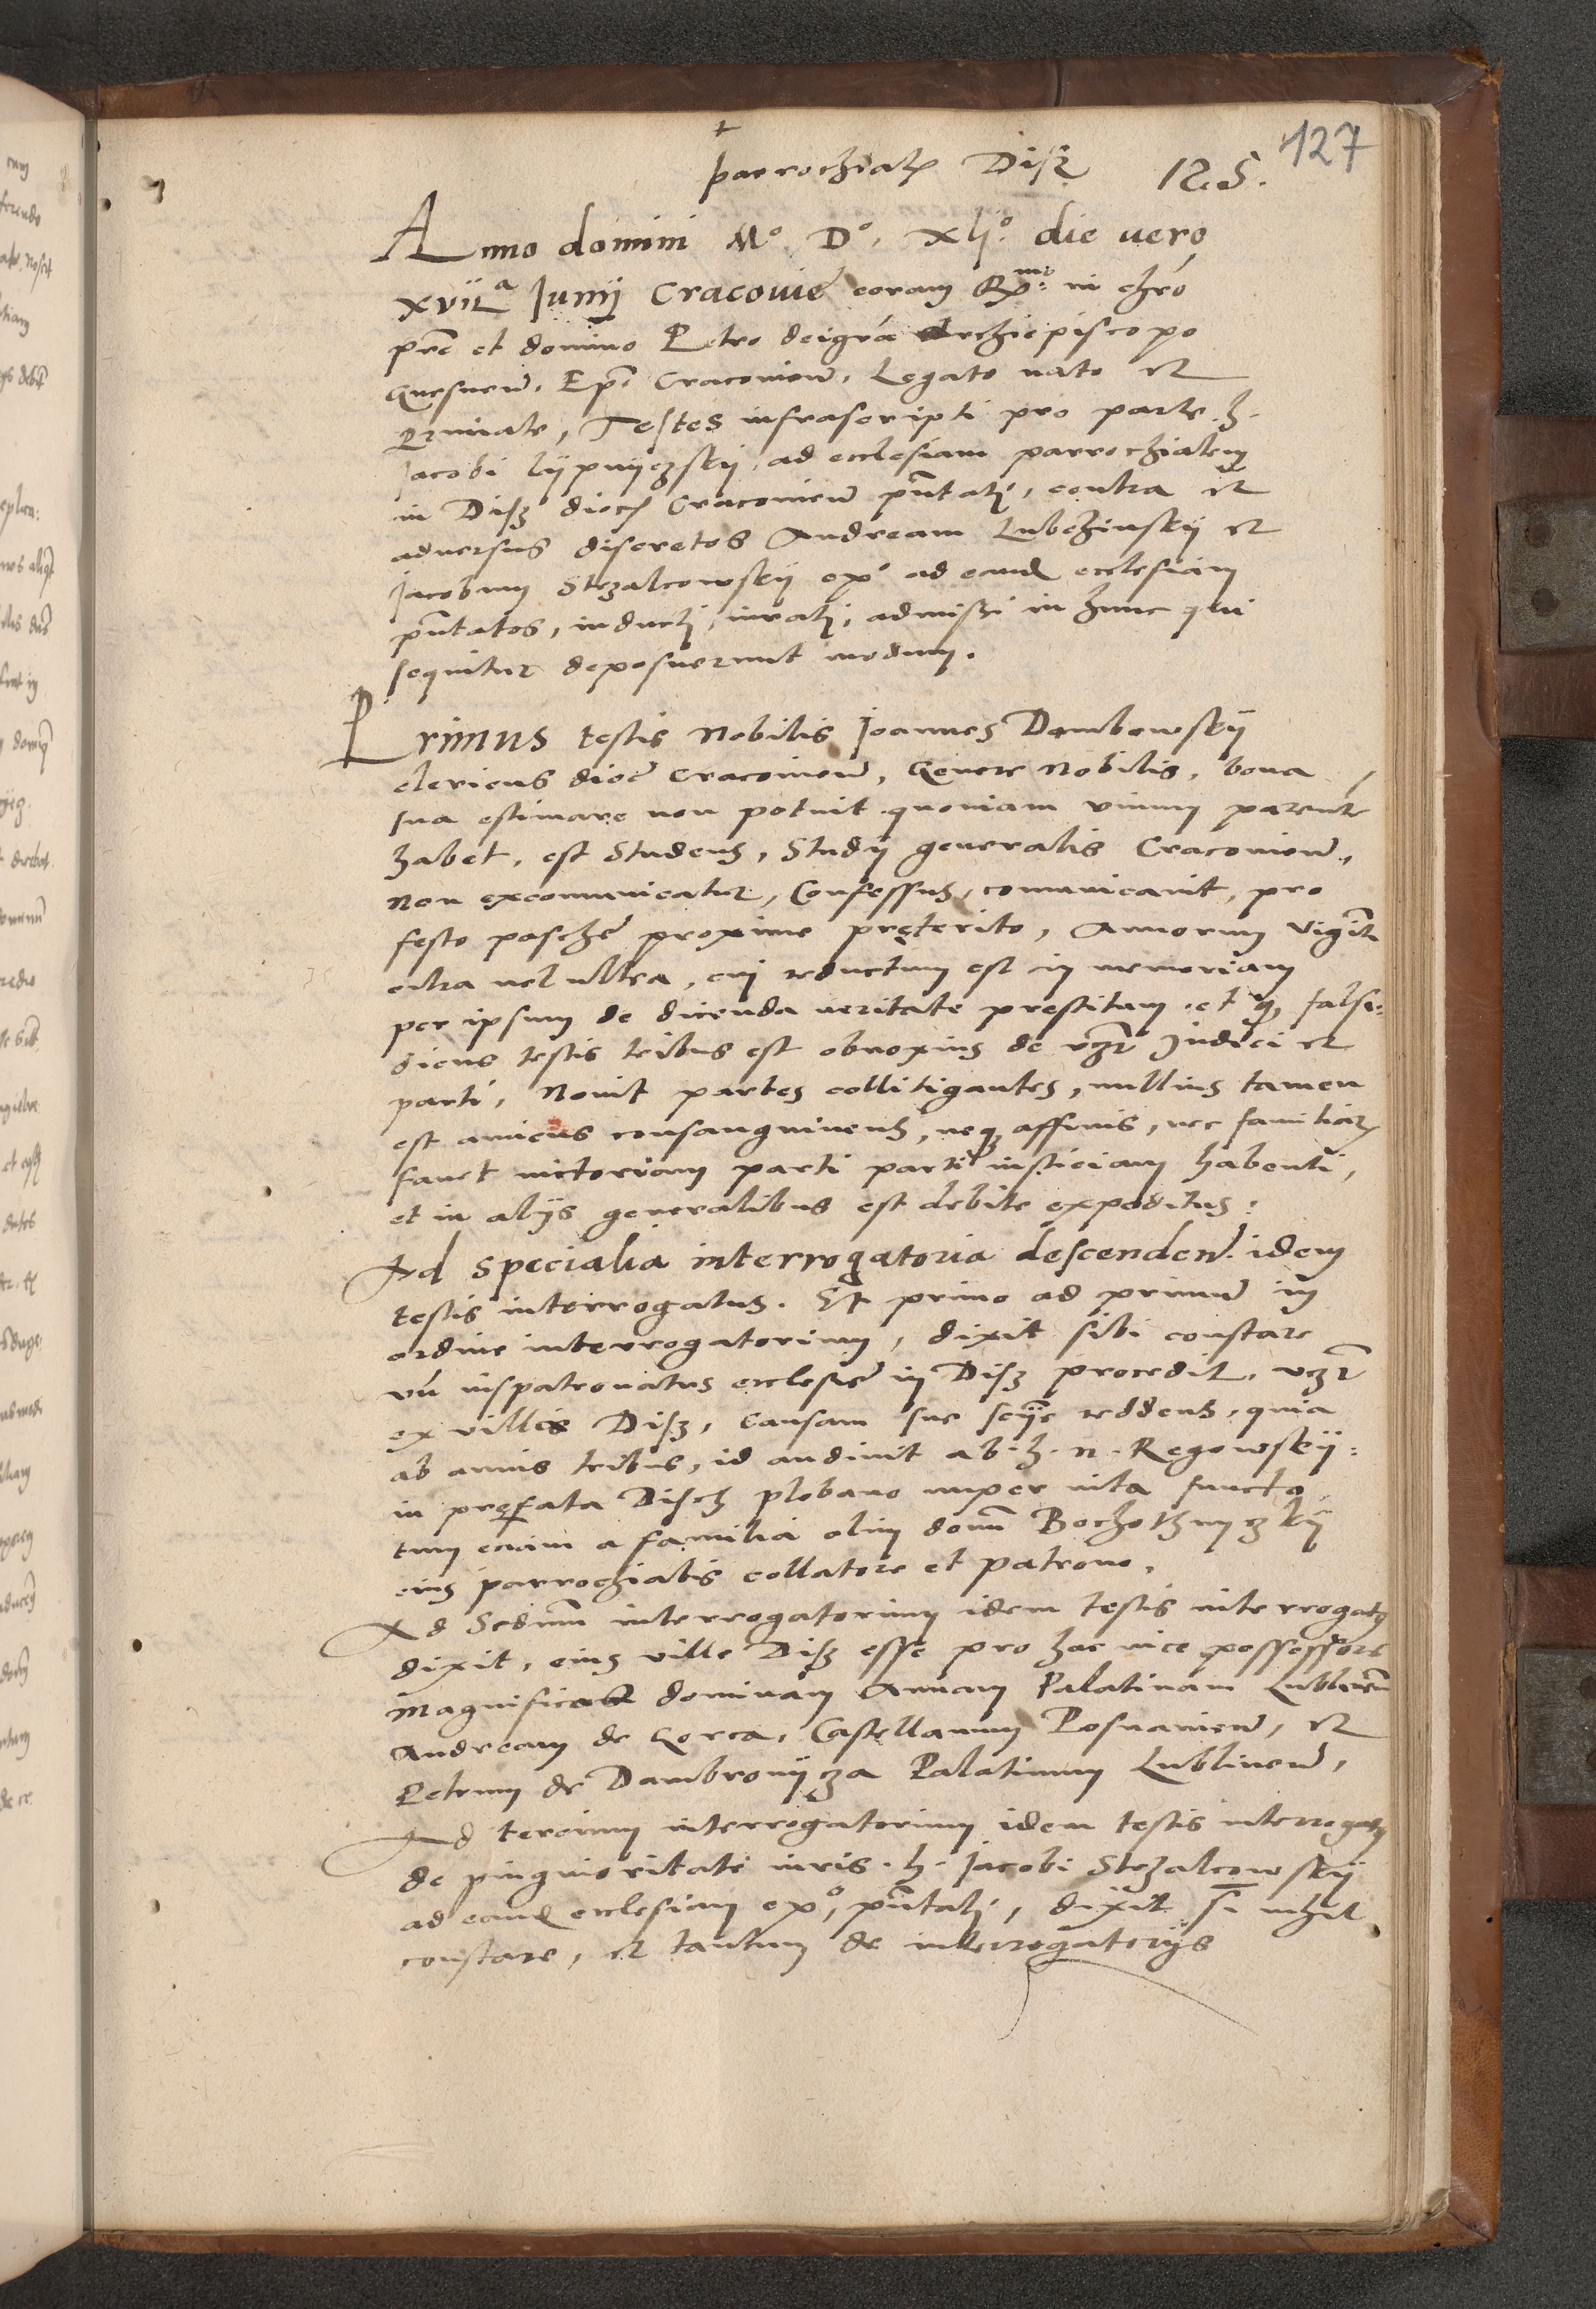 127
parrochial Disz 125.
Anno domini M° D°. xlj°. die uero
xvija Junij Cracouie coram Rmo: in chro
pre et domino Petro dei gra Archiepiscopo
Gnesnen. Epo Cracouien. Legato nato et
Primate, Testes infrascripti pro parte h.
Jacobi Lypnyczskij ad ecclesiam parrochialem
in Disz dioc Cracouien pntati, contra et
aduersus discretos Andream Lubchinskij et
Jacobum Strzalcowskij ex° ad eand ecclesiam
pntatos, inducti, iurati, admissi in hunc qui
sequitur deposuerunt modum.
Primus testis Nobilis Joannes Dembowskij
clericus dioc Cracouien, Genere Nobilis, bona
sua estimare non potuit quoniam viuum parente
habet, est Studens, Studij generalis Cracouien,
Non excomunicatus, Confessus, comunicauit, pro
festo pasche proxime pręterito, Annorum Viginti
citra uel ultra, cui reductum est in memoriam
per ipsum de dicenda ueritate prestitum et q, falsi-
dicus testis tribus est obnoxius deo uczt Judici et
parti, Nouit partes collitigantes, nullius tamen
est amicus consanguineus, neq affinis, nec familiaris
fauet uictoriam parti parti iusticiam habenti,
et in alijs generalibus est debite expeditus:
Ad specialia interrogatoria descenden. idem
testis interrogatus. Et primo ad primu in
ordine interrogatorium, dixit sibi constare
vn iuspatronatus ecclesie in Disz procedit. uczt
ex villis Disz, Causam sue scije reddens, quia
ab annis tribus, id audiuit ab. h. n. Regowskij:
in pręfata Disch plebano nuper uita functo
tum eciam a familia olim domi Bochothnyczkij
eius parrochialis collatore et patrono.
Ad Secdum interrogatorium idem testis interrogatus
dixit, eius ville Disz esse pro hac uice possessore
Magnificam dominam Annam Palatinam Lublinen
Andream de Gorca, Castellanum Posnanien, et
Petrum de Dambrowijcza Palatinum Lublinen,
Ad tercium interrogatorium idem testis interrogatus
de pinguioritate iuris. h. Jacobi Strzalcowskij
ad eand ecclesiam ex°, pntati, dixit si nihil
constare, et tantum de interrogatorijs